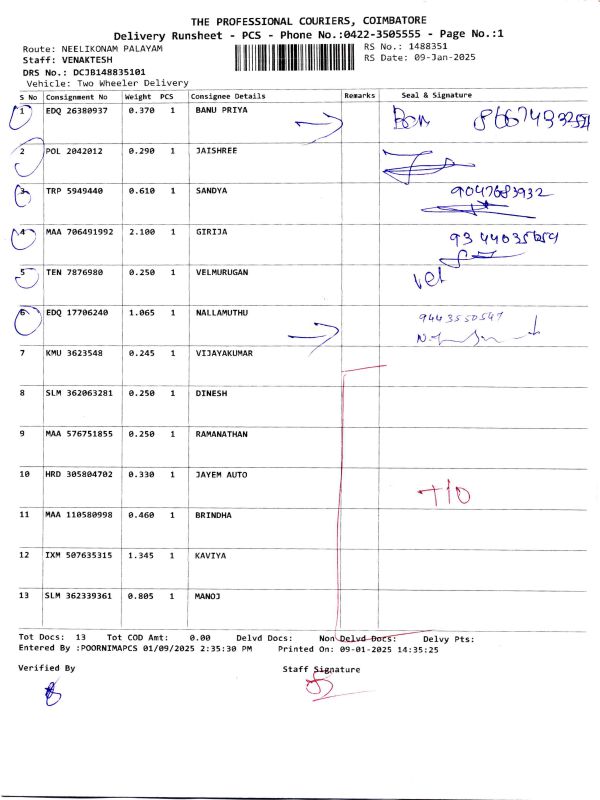 THE PROFESSIONAL COURIERS, COIMBATORE
Delivery Runsheet - PCS - Phone No.:0422-3505555 - Page No.:1
Route: NEELIKONAM PALAYAM
RS No.: 1488351
Staff: VENAKTESH
RS Date: 09-Jan-2025
DRS No.: DCJB148835101
Vehicle: Two Wheeler Delivery
S No Consignment No Weight PCS Consignee Details Remarks Seal & Signature
1 EDQ 26380937 0.370 1 BANU PRIYA
2 POL 2042012 0.290 1 JAISHREE
3 TRP 5949440 0.610 1 SANDYA 9047683932
4 MAA 706491992 2.100 1 GIRIJA
5 TEN 7876980 0.250 1 VELMURUGAN vel
6 EDQ 17706240 1.065 1 NALLAMUTHU 9443550547
7 KMU 3623548 0.245 1 VIJAYAKUMAR
8 SLM 362063281 0.250 1 DINESH
9 MAA 576751855 0.250 1 RAMANATHAN
10 HRD 305804702 0.330 1 JAYEM AUTO T/O
11 MAA 110580998 0.460 1 BRINDHA
12 IXM 507635315 1.345 1 KAVIYA
13 SLM 362339361 0.805 1 MANOJ
Tot Docs: 13 Tot COD Amt: 0.00 Delvd Docs: Non Delvd Docs: Delvy Pts:
Entered By :POORNIMAPCS 01/09/2025 2:35:30 PM Printed On: 09-01-2025 14:35:25
Verified By Staff Signature